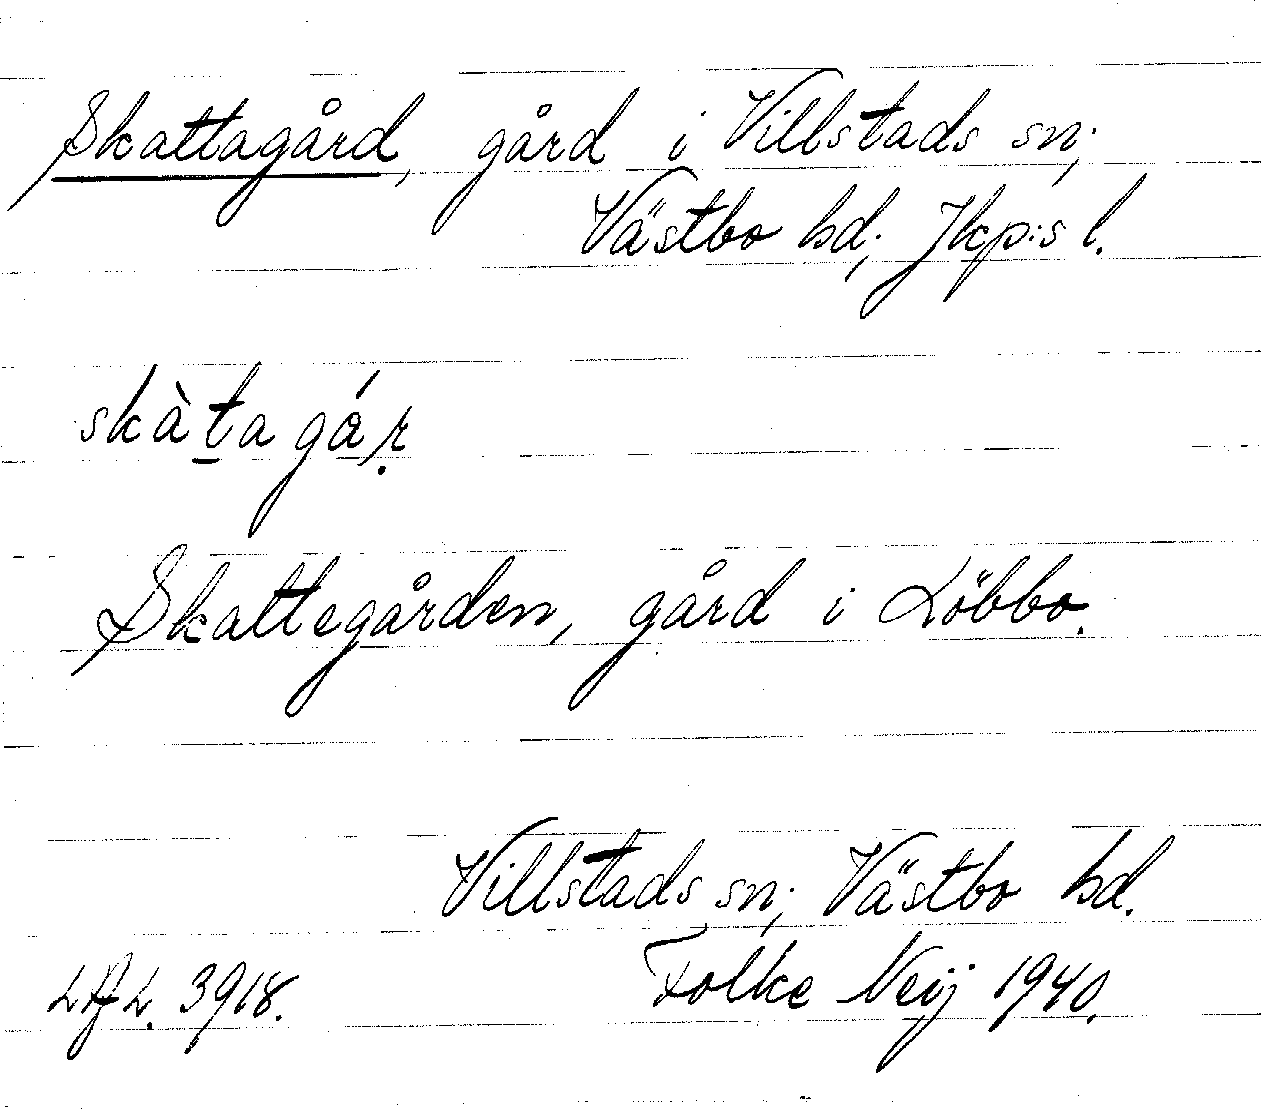 Skattagård, gård i Villstads sn;
Västbo hd; Jkp:s l.
skàtagá̊ṛ
Skattegården, gård i Löbbo.
Villstads sn; Västbo hd.
3918. Folke Neij 1940.